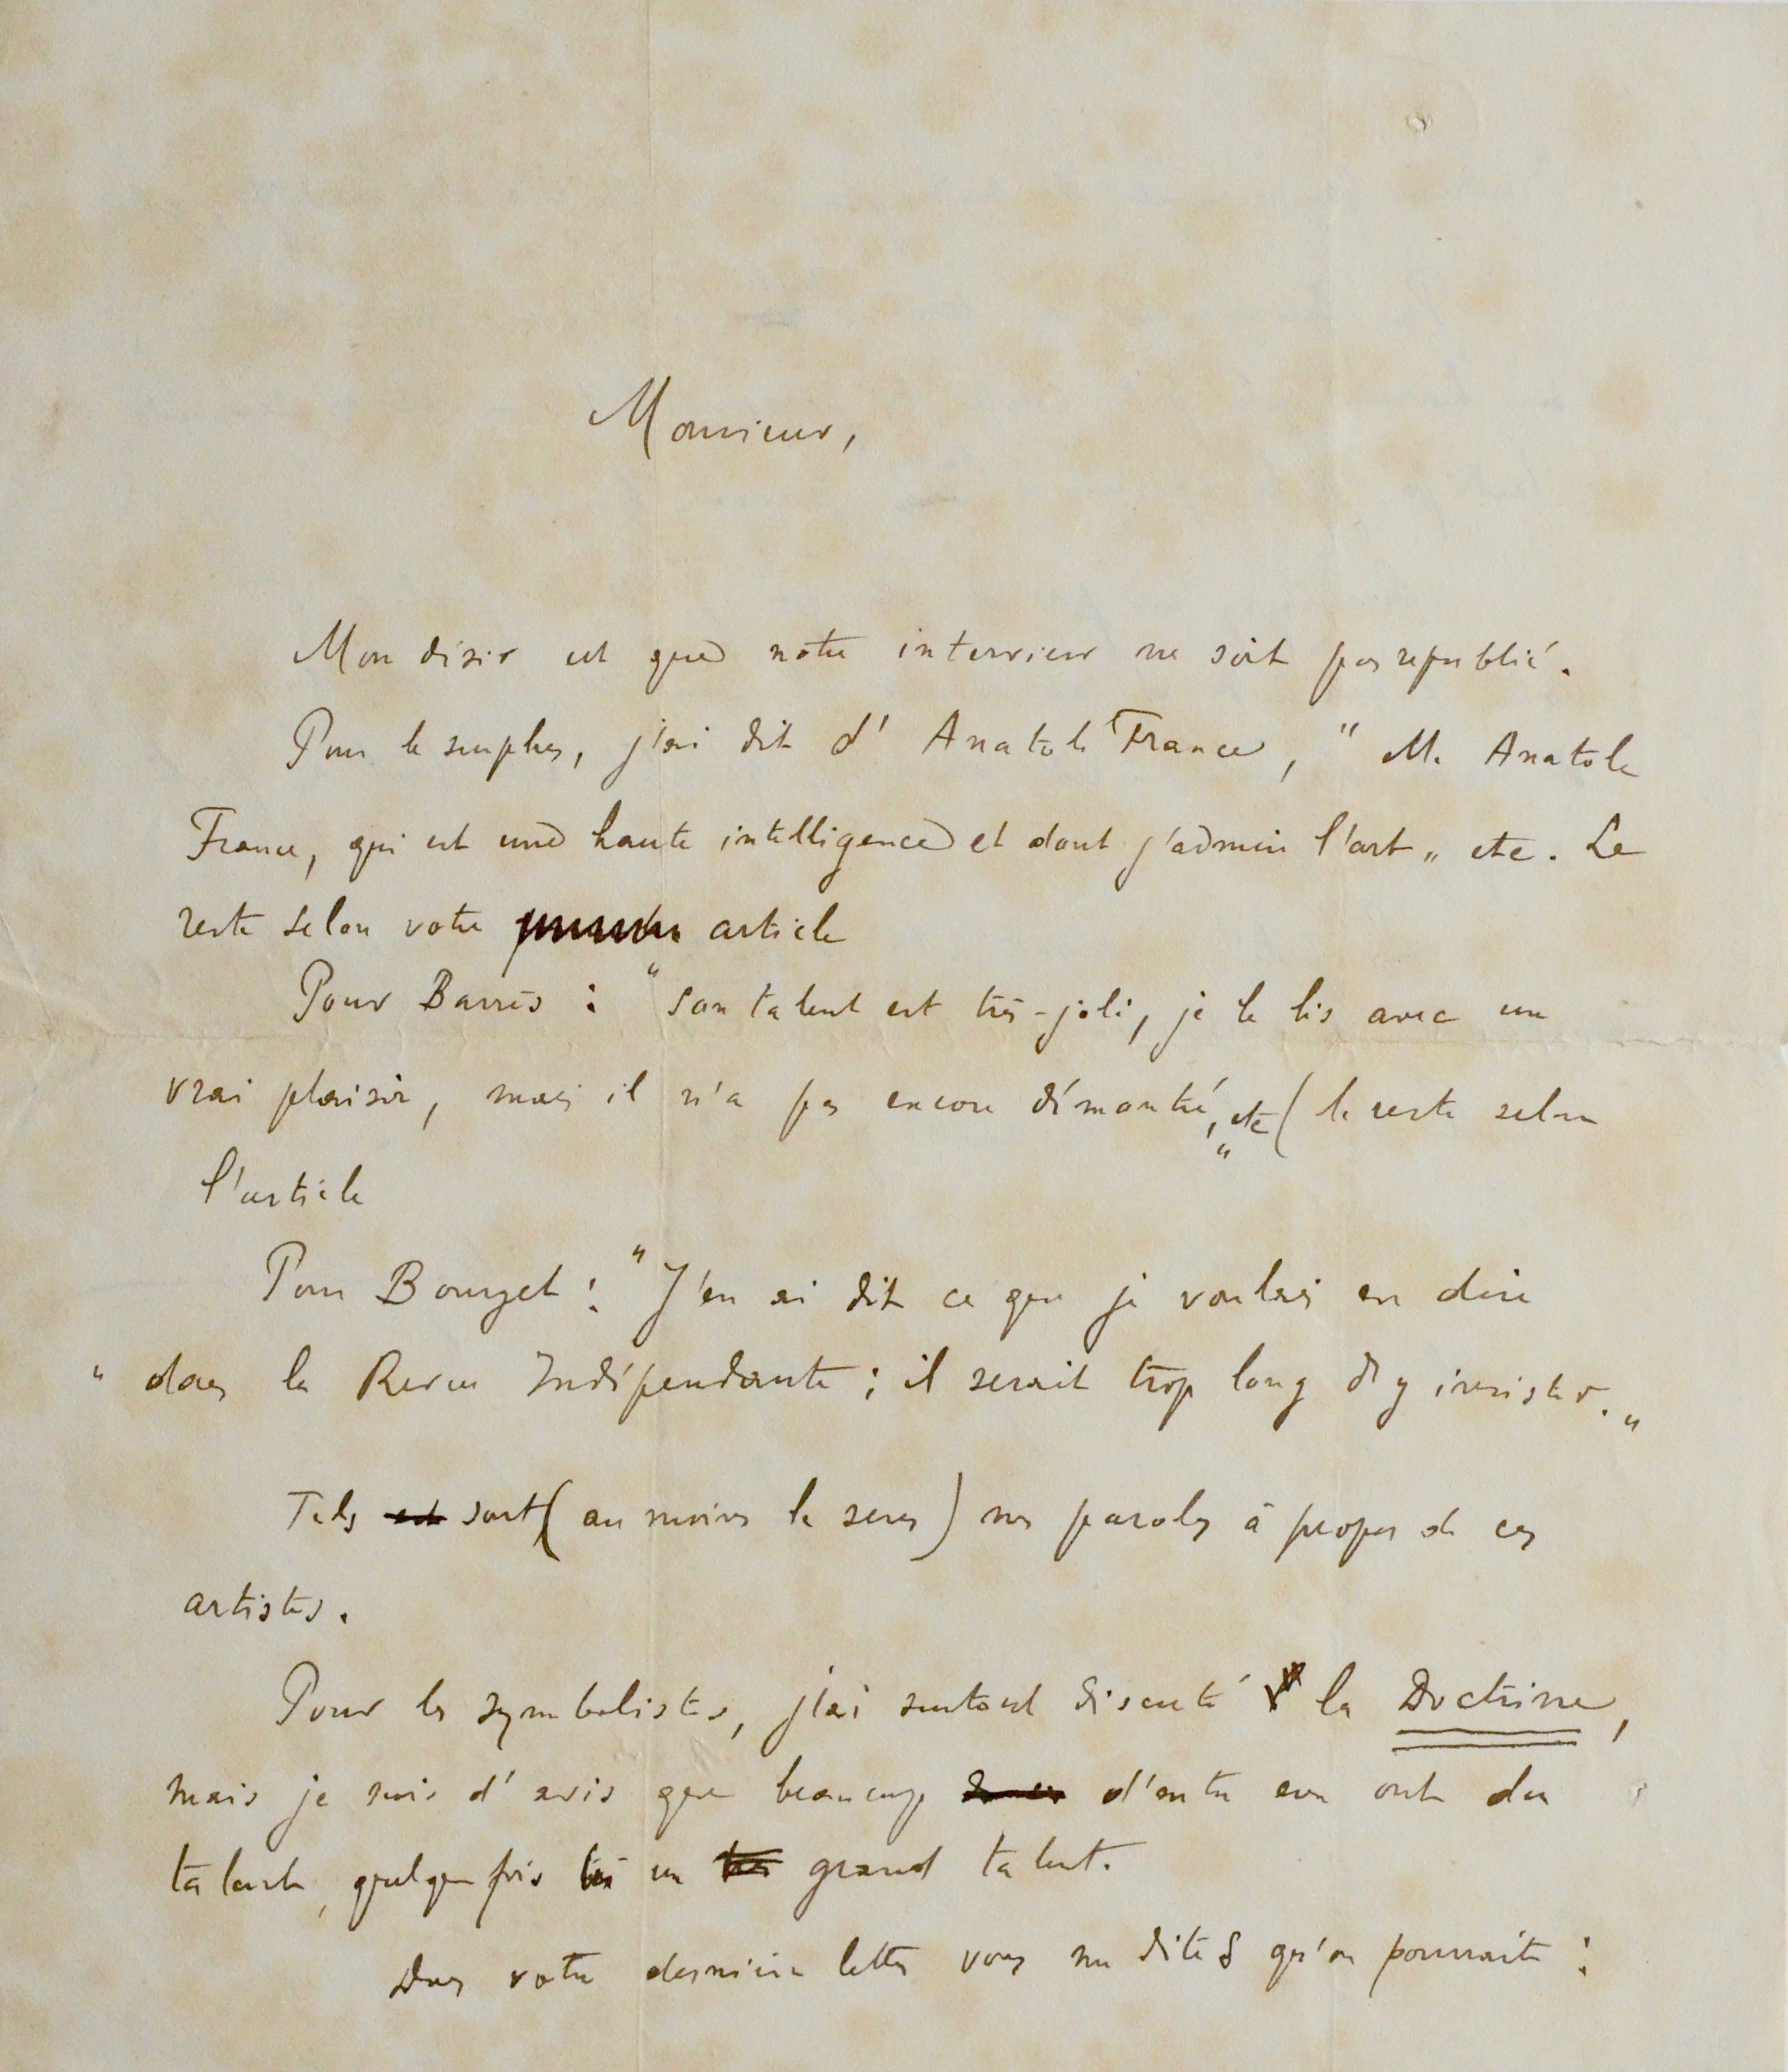 Monsieur,
Mon désir est que notre interview ne soit pas republié.
Pour le surplus, j'ai dit d'Anatole France, " M. Anatole
France, qui est une haute intelligence et dont j'admire l'art „ etc. Le
reste selon votre article
Pour Barrès : " son talent est très-joli, je le lis avec un
vrai plaisir, mais il n'a pas encore démontré, „ etc ( le reste selon
l'article
Pour Bourget : " J'en ai dit ce que je voulais en dire
" dans la Revue Indépendante ; il serait trop long d'y insister. „
Tels est sont ( au moins le sens ) mes paroles à propos de ces
artistes.
Pour les symbolistes, j'ai surtout discuté la Doctrine,
mais je suis d'avis que beaucoup d'entre eux ont du
talent, quelquefois un très grand talent.
Dans votre dernière lettre vous me dites qu'on pourrait :